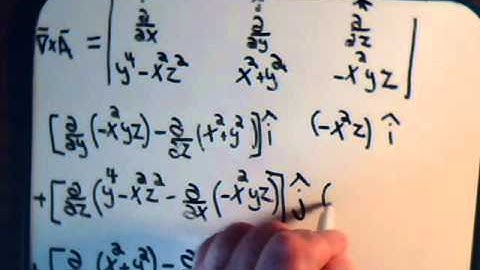 ∂/∂x ∂/∂y ∂/∂z
∇×A = | y⁴-x²z² x²+y² -x²yz |
[∂/∂y(-x²yz)-∂/∂z(x²+y²)]î (-x²z) î
+[∂/∂z(y⁴-x²z²-∂/∂x(-x²yz)]ĵ (
+[∂/∂x(x²+y²)-∂